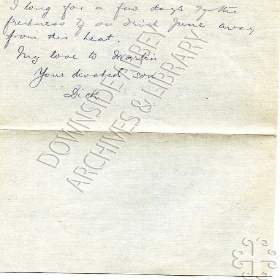 I long for a few days of the
freshness of an Irish June away
from this heat.
My love to Martin
Your devoted son
Dick
DOWNSIDE ABBEY
ARCHIVES & LIBRARY